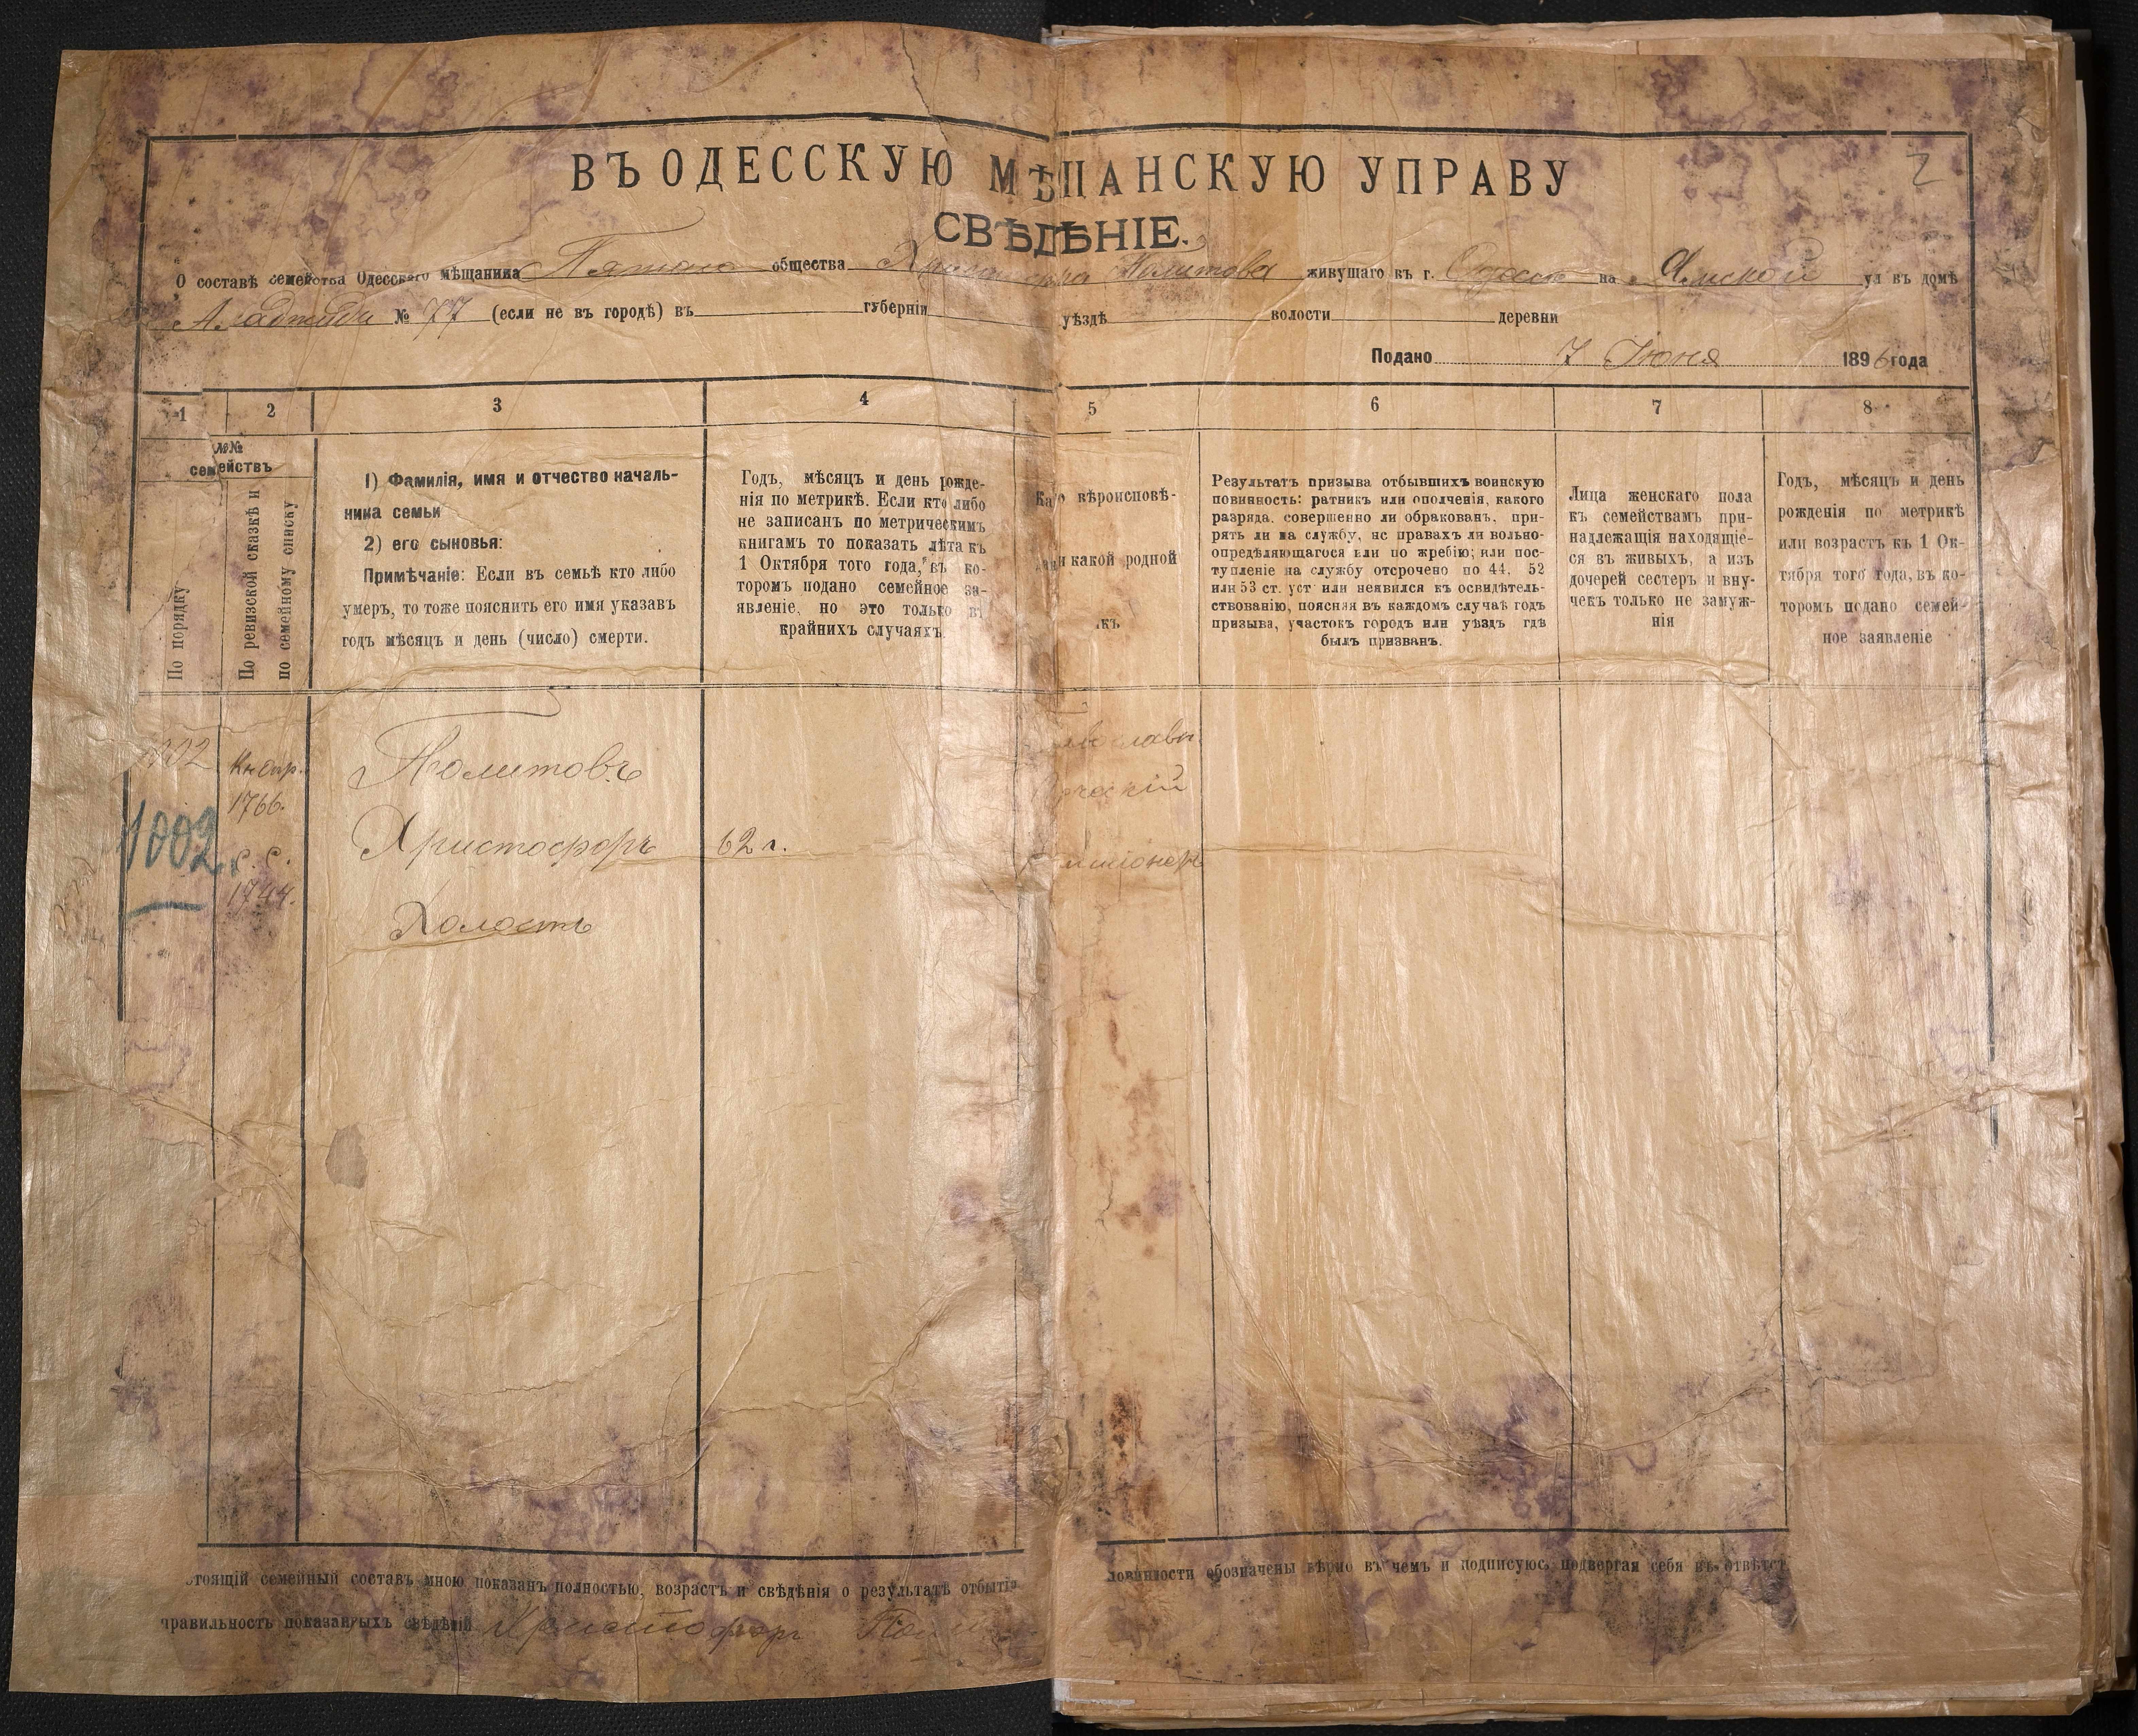 ВЪ ОДЕССКУЮ МѢЩАНСКУЮ УПРАВУ
2
СВѢДѢНІЕ.
О составѣ семейства Одесскаго мѣщанина Пятаго общества Христофора Политова живущаго въ г. Одессѣ на Ямской ул въ домѣ
№ 77 (если не въ городѣ) въ губерніи уѣздѣ волости деревни
Подано 7 Іюня 1896 года
1 2 3 4 5 6 7 8
№№ семействъ
По порядку
По ревизской сказкѣ и по семейному списку
1) Фамилія, имя и отчество началь-
ника семьи
2) его сыновья:
Примѣчаніе: Если въ семьѣ кто либо
умеръ, то тоже пояснить его имя указавъ
годъ мѣсяцъ и день (число) смерти.
Годъ, мѣсяцъ и день рожде-
нія по метрикѣ. Если кто либо
не записанъ по метрическимъ
книгамъ то показать лѣта къ
1 Октября того года, въ ко-
торомъ подано семейное за-
явленіе, но это только въ
крайнихъ случаяхъ
вѣроисповѣ-
и какой родной
Результатъ призыва отбывшихъ воинскую
повинность: ратникъ или ополченія, какого
разряда. совершенно ли обракованъ, при-
рятъ ли на службу, нс правахъ ли вольно-
опредѣляющагося или по жребію; или пос-
тупленіе на службу отсрочено по 44. 52
или 53 ст. уст или неявился къ освидѣтель-
ствованію, поясняя въ каждомъ случаѣ годъ
призыва, участокъ городъ или уѣздъ гдѣ
былъ призванъ.
Лица женскаго пола
къ семействамъ при-
надлежащія находящіе-
ся въ живыхъ, а изъ
дочерей сестеръ и вну-
чекъ только не замуж-
нія
Годъ, мѣсяцъ и день
рожденія по метрикѣ
или возрастъ къ 1 Ок-
тября того года, въ ко-
торомъ подано семей-
ное заявленіе
1002
1766.
1002.
с. с.
1744.
Политовъ
Христофоръ 62 г.
Холостъ
семейный составъ мною показанъ полностью, возрастъ и свѣдѣнія о результатѣ отбытія обозначены вѣрно въ чемъ и подписуюсь подвергая себя въ
правильность показанныхъ свѣдѣній Христофоръ